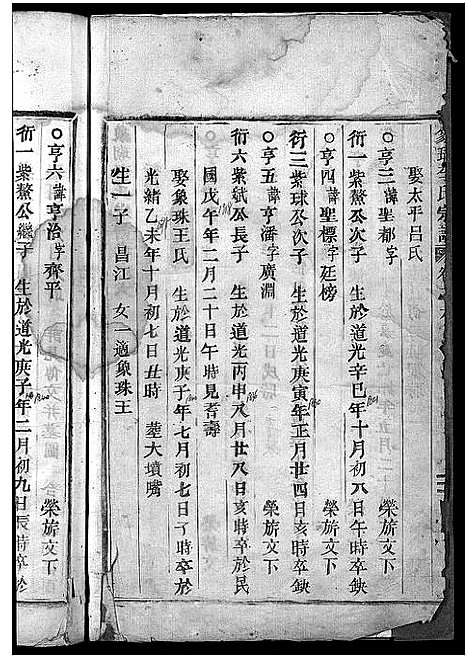 娶太平吕氏
○亨三諱聖都字 榮旂文下
衍一紫鰲公次子 生於道光辛巳年十月初八日午時卒缺
○亨四諱聖標字廷榜 榮旂文下
衍三紫球公次子 生於道光庚寅年正月廿四日亥時卒缺
○亨五諱亨潘字廣淵 榮旂文下
衍六紫斌公長子 生於道光丙申年八月廿八日亥時卒於民
國戊午年二月二十日午時見耆壽
娶象珠王氏 生於道光庚子年七月初七日丁時卒於
光緒乙未年十月初七日丑時 塟大墳嘴
生一子 昌江 女一適象珠王
○亨六諱亨治字齊平 榮旂文下
衍一紫鰲公繼子 生於道光庚子年二月初九日辰時卒於